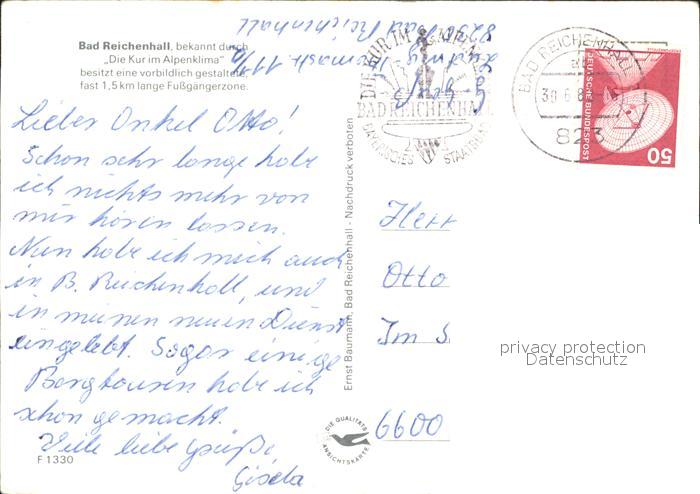 Bad Reichenhall, bekannt durch
„Die Kur im Alpenklima"
besitzt eine vorbildlich gestaltete
fast 1,5 km lange Fußgängerzone.
8230 Bad Reichenhall
DIE KUR IM ALPEN
BAD REICHENHALL
BAYERISCHES STAATSBAD
BAD REICHENHALL
30.6.8
82 3
DEUTSCHE BUNDESPOST
50
Lieber Onkel Otto!
Schon sehr lange habe
ich nichts mehr von
mir hören lassen.
Nun habe ich mich auch
in B. Reichenhall, und
in meinen neuen Dienst
eingelebt. Sogar einige
Bergtouren habe ich
schon gemacht.
Viele liebe Grüße
Gisela
F 1330
Ernst Baumann, Bad Reichenhall - Nachdruck verboten
DIE QUALITÄTS
ANSICHTSKARTE
Herr
Otto
Im S
6600
privacy protection
Datenschutz